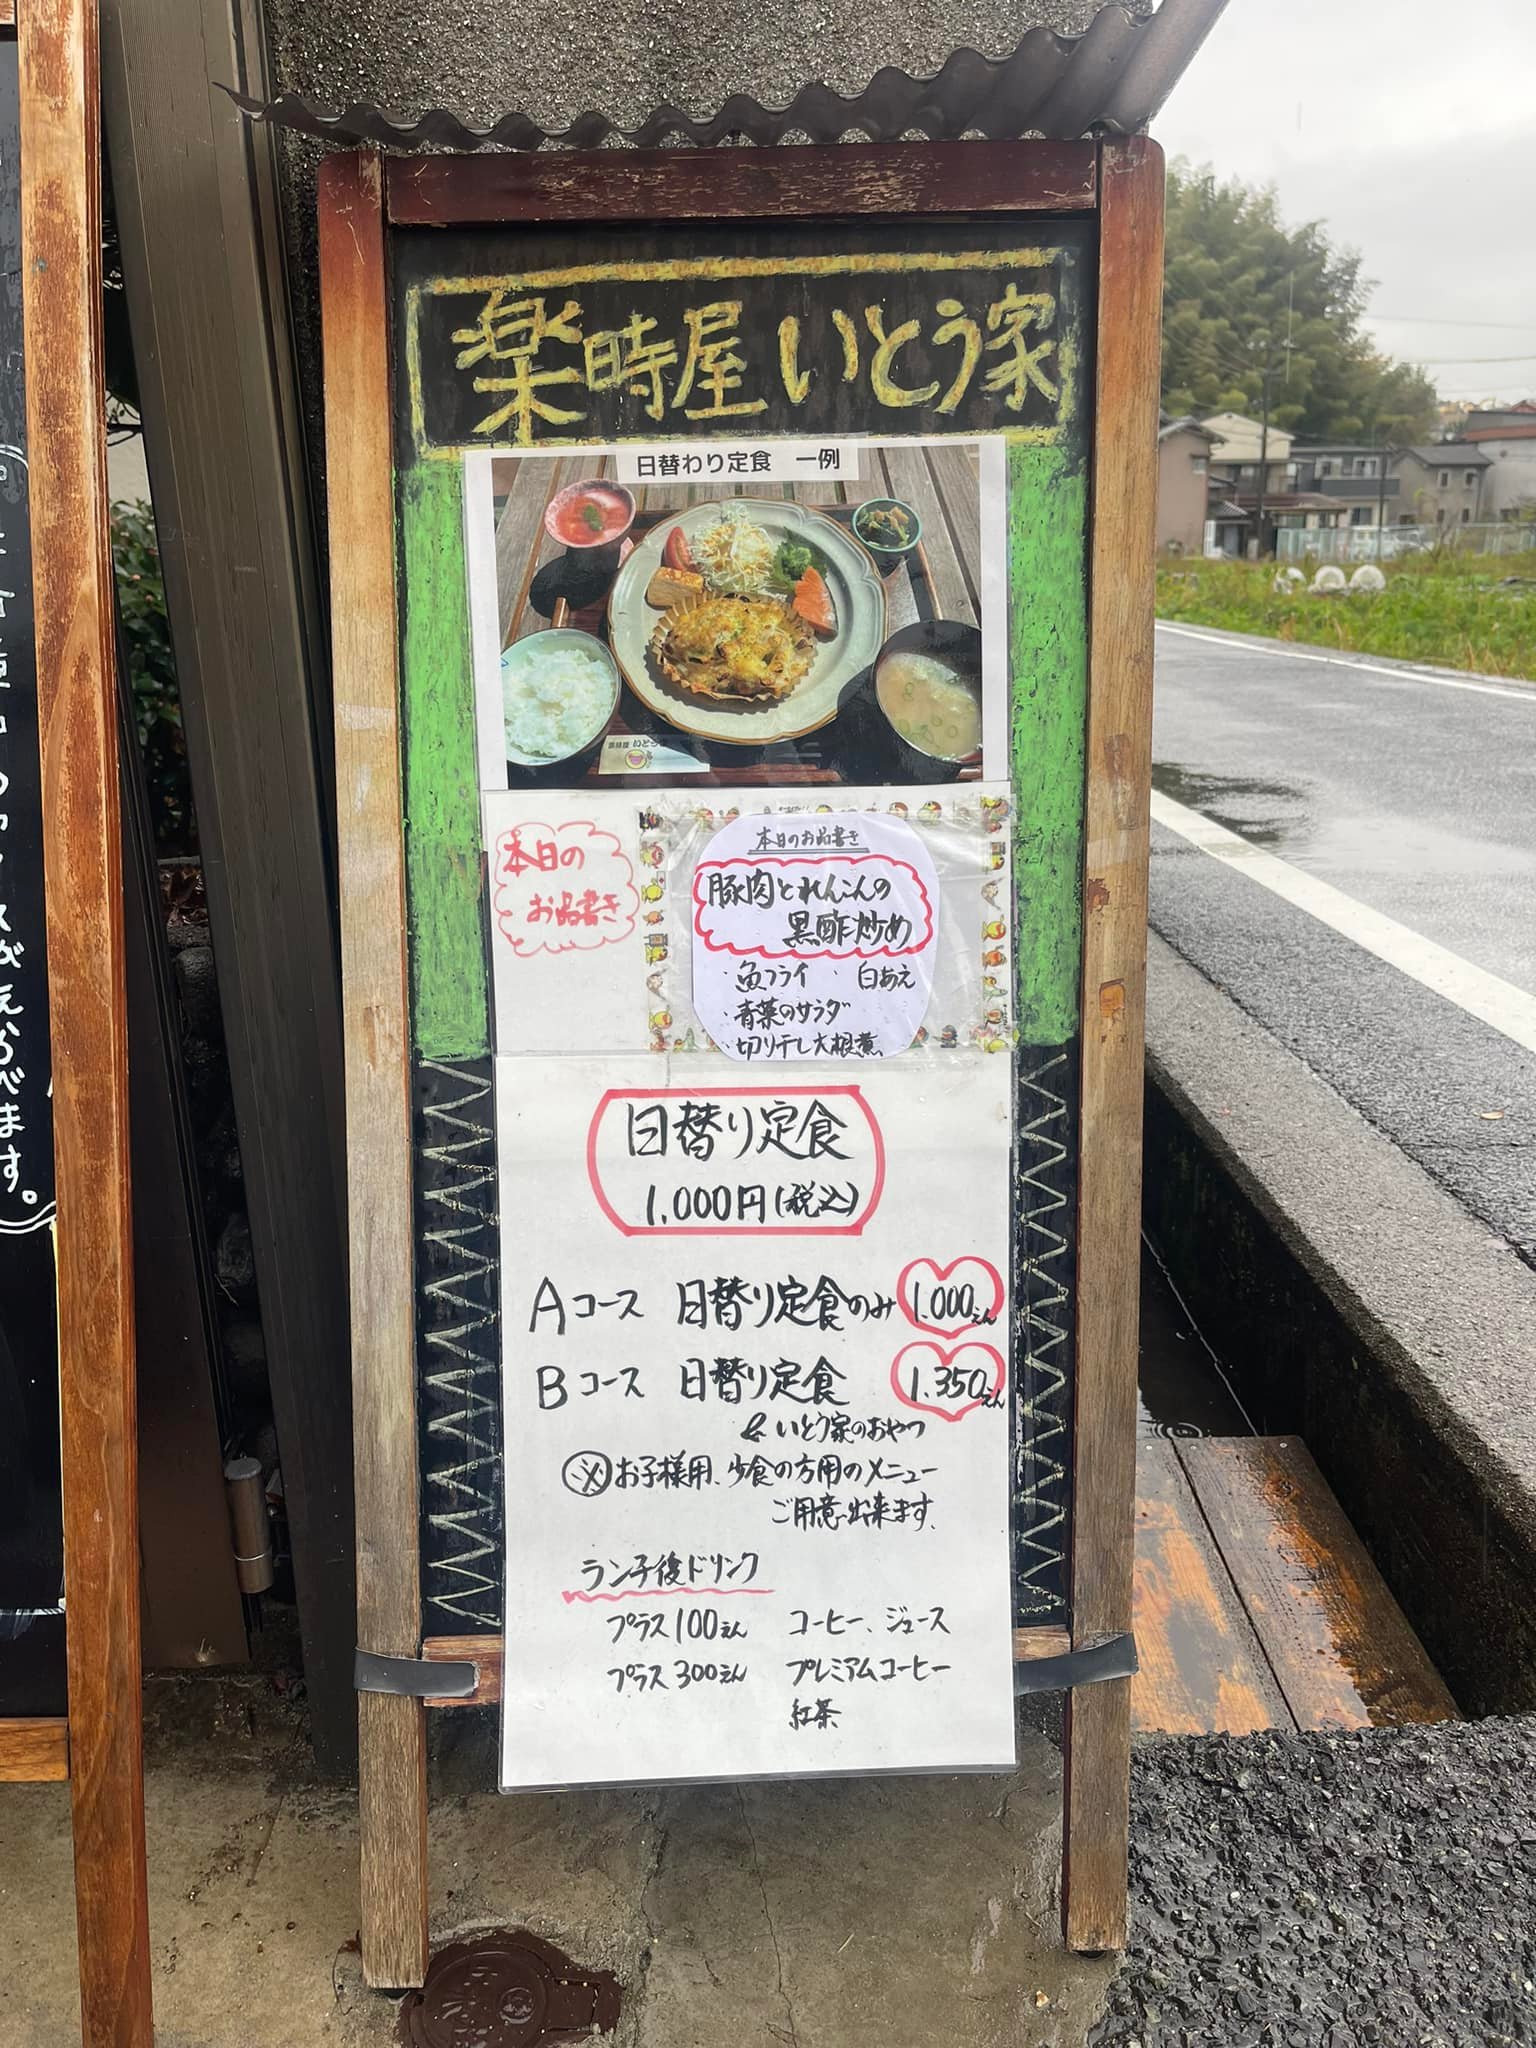 楽時屋 いとう家
日替わり定食 一例
楽時屋 いとう家
本日の
お品書き
本日のお品書き
豚肉とれんこんの
黒酢炒め
・魚フライ ・白あえ
・青菜のサラダ
・切り干し大根煮
日替り定食
1.000円(税込)
Aコース 日替り定食のみ 1.000えん
Bコース 日替り定食 1.350えん
& いとう家のおやつ
※お子様用、少食の方用のメニュー
ご用意出来ます。
ランチ後ドリンク
プラス100えん コーヒー、ジュース
プラス300えん プレミアムコーヒー
紅茶
えらべます。